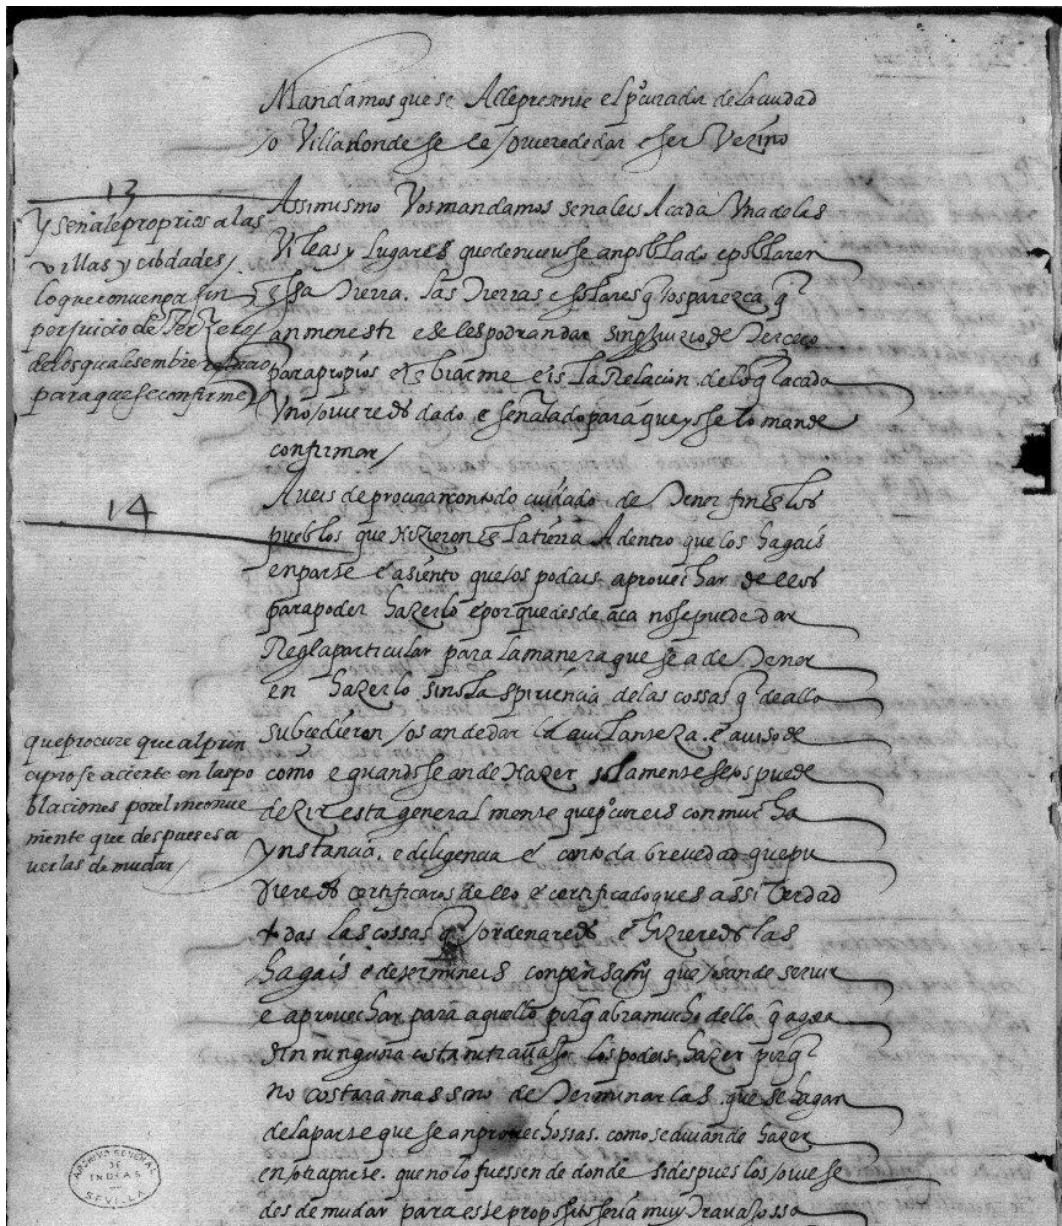 Mandamos que se Alle presente el p^ocurador de la ciudad
o Villa donde se le oviere de dar e ser Vezino
13
Y señale proprios a las
villas y cibdades
lo que convenga sin
perjuicio de Terzeros
de los quales embie
para que se confirme
Assimismo Vos mandamos señaleis A cada Una de las
Villas y Lugares que de nuevo se an poblado e poblaren
en essa Tierra. las Tierras e solares q^ os parezca q^
an menester e se les podran dar sin perjuizio de Tercero
para propios e enbiarme eis la Relacion de lo q^ A cada
Uno ovieredes dado e señalado para que yo se lo mande
confirmar
14
Aveis de procurar con todo cuidado de Tener fin en los
pueblos que hizieren en la tierra Adentro que los hagais
en parte e asiento que os podais aprovechar de ellos
para poder hazerlo e por que desde aca no se puede dar
Regla particular para la manera que se a de Tener
en hazerlo sino la espiriencia de las cossas q^ de alla
subcedieren os an de dar la avilanteza. e aviso de
como e quando se an de Hazer solamente se os puede
dezir esta general mente que p^ocureis con mucha
Ynstancia. e diligencia e con toda brevedad que pu
dieredes certificaros dello e certificado que es assi Verdad
todas las cossas q^ ordenaredes e hizieredes las
hagais e determineis con pensamy^o que os an de servir
e aprovechar para aquello porq^ abra mucho dello q^ agora
sin ninguna costa ni travajo los podeis hazer porq^
no costara mas sino de Terminar las. que se hagan
de la parte que sean provechossas. como se avian de hazer
en otra parte. que no lo fuessen de donde si despues los oviese
des de mudar para este proposito seria muy Travajosso
que procure que al prin
cipio se acierte en las po
blaciones por el inconve
niente que despues es a
verlas de mudar
ARCHIVO GENERAL
DE
INDIAS
SEVILLA